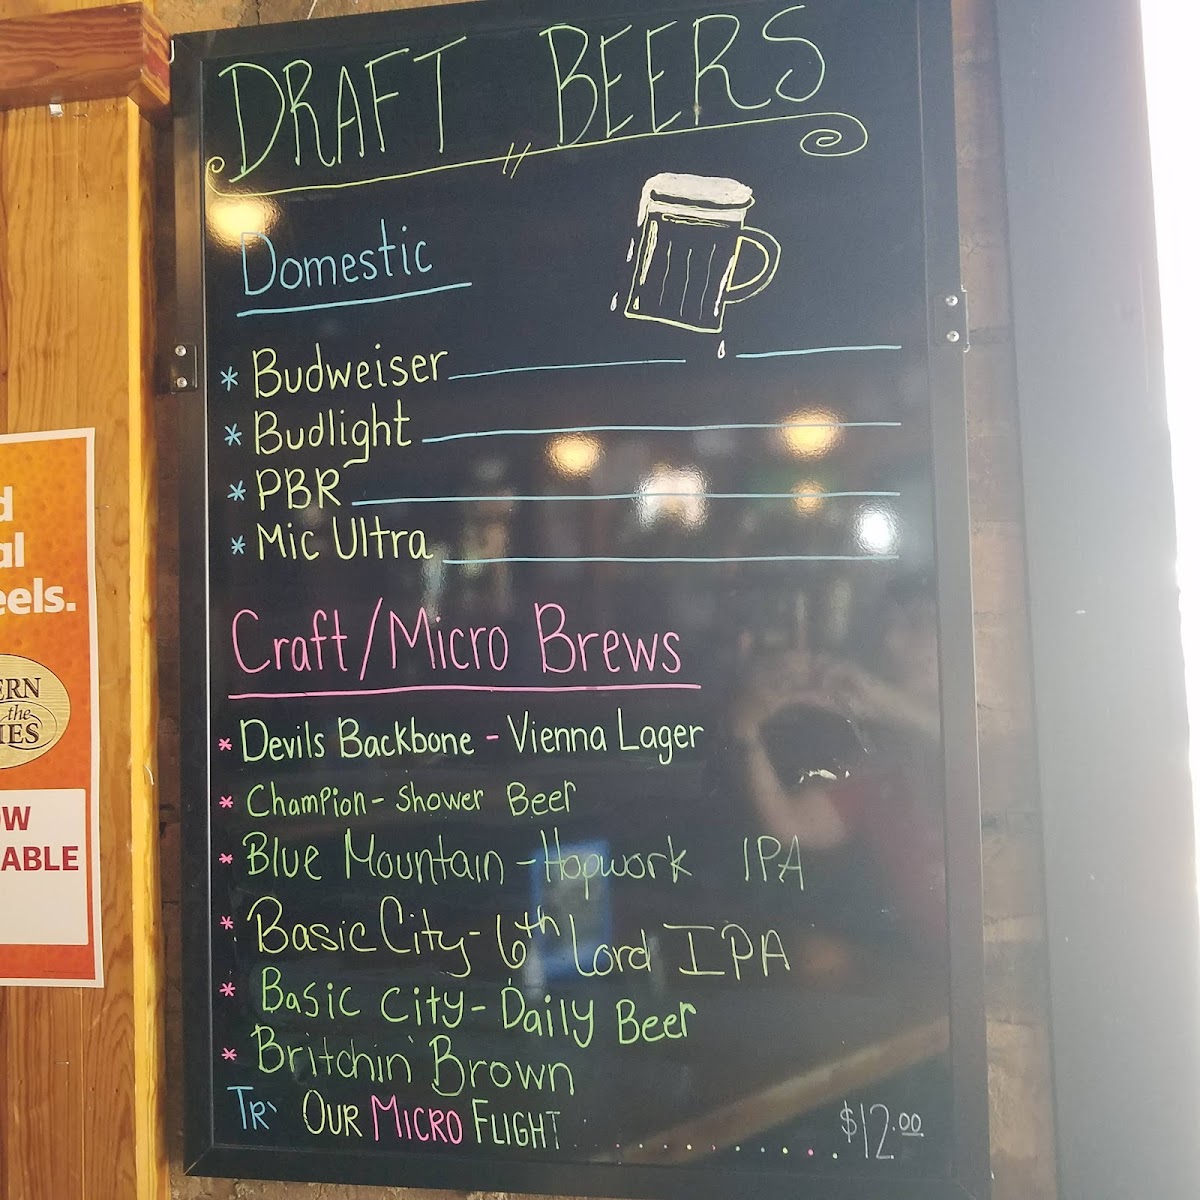 DRAFT BEERS
Domestic
* Budweiser
* Budlight
* PBR
* Mic Ultra
Craft/Micro Brews
* Devils Backbone - Vienna Lager
* Champion - Shower Beer
* Blue Mountain - Hopwork IPA
* Basic City - 6th Lord IPA
* Basic City - Daily Beer
* Britchin' Brown
OUR MICRO FLIGHT ........... $12.00
eels.
ERN
the
IES
OW
ABLE